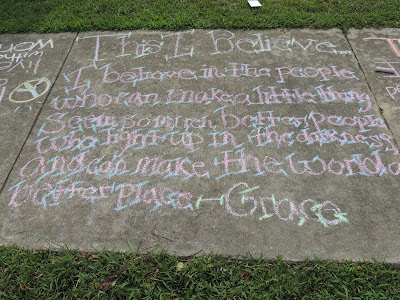 This I Believe...
I believe in the people
who can make a little thing
Seem so much better, people
who light up in the darkness
and can make the world a
better place - Grace